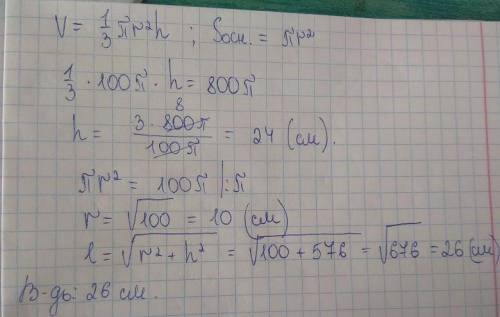 V = 1/3 πr²h ; Sосн. = πr²
1/3 · 100π · h = 800π
h = 3 · 800π / 100π = 24 (см).
8
πr² = 100π |:π
r = √100 = 10 (см)
l = √(r² + h²) = √(100 + 576) = √676 = 26 (см)
В-дь: 26 см.